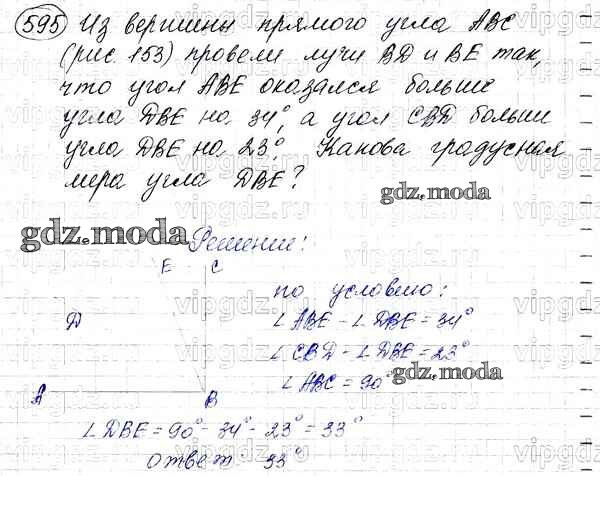 595 Из вершины прямого угла ABC
(рис. 153) провели лучи BD и BE так,
что угол ABE оказался больше
угла DBE на 34°, а угол CBD больше
угла DBE на 23°. Какова градусная
мера угла DBE?
gdz.moda
gdz.moda
Решение:
E C
по условию:
D
∠ ABE - ∠ DBE = 34°
∠ CBD - ∠ DBE = 23°
∠ ABC = 90°
gdz.moda
A B
∠ DBE = 90° - 34° - 23° = 33°
Ответ: 33°